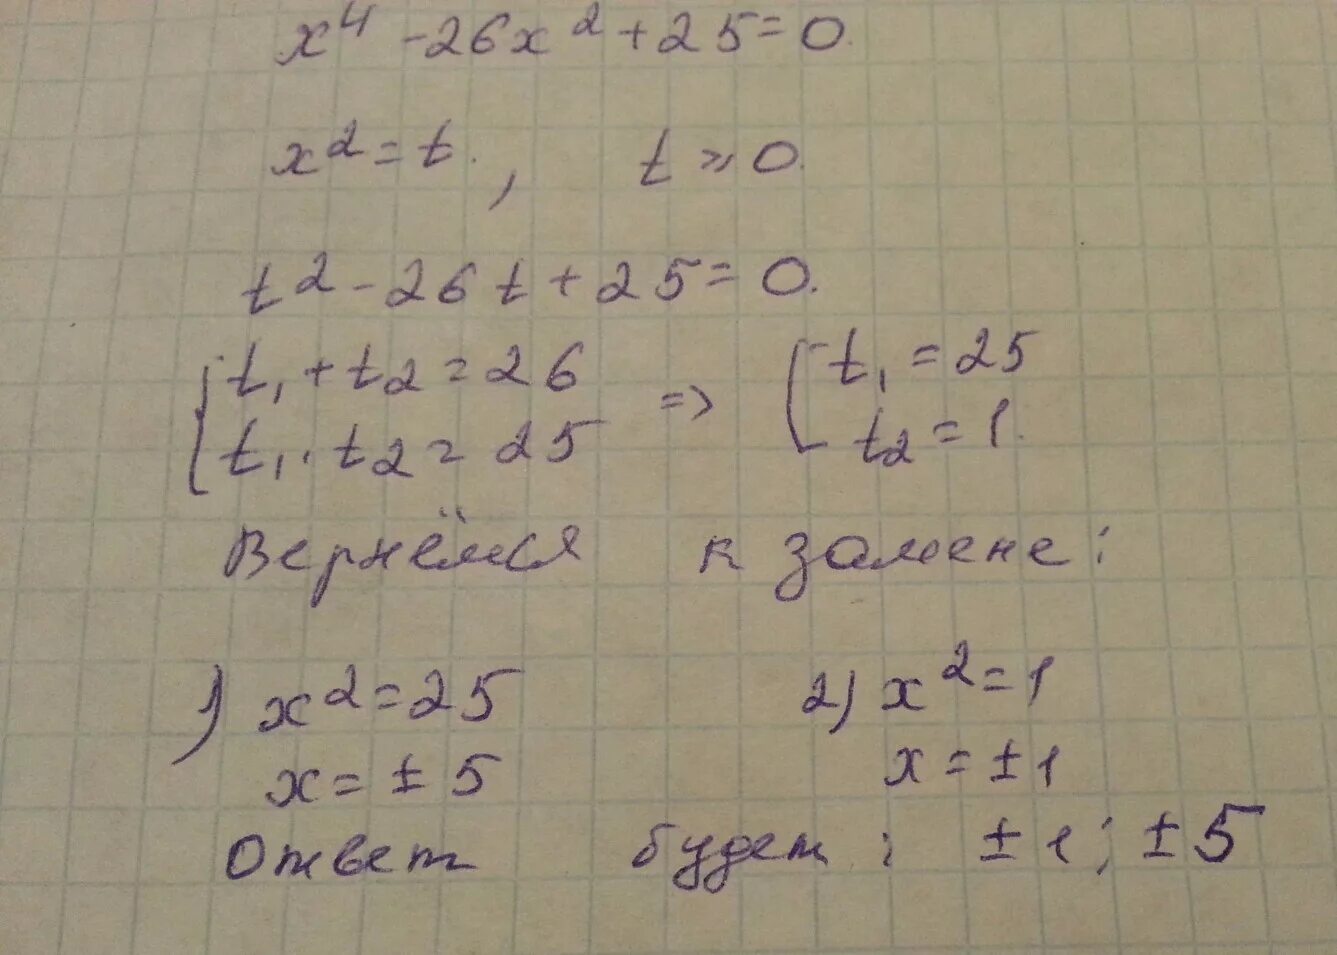 x⁴ -26x² +25=0.
x²=t. , t ≥ 0.
t²-26t+25=0.
{ t₁+t₂=26 => [ t₁=25
t₁·t₂=25 t₂=1.
Вернёмся к замене:
1) x²=25 2) x²=1
x=±5 x=±1
Ответ будет: ±1; ±5